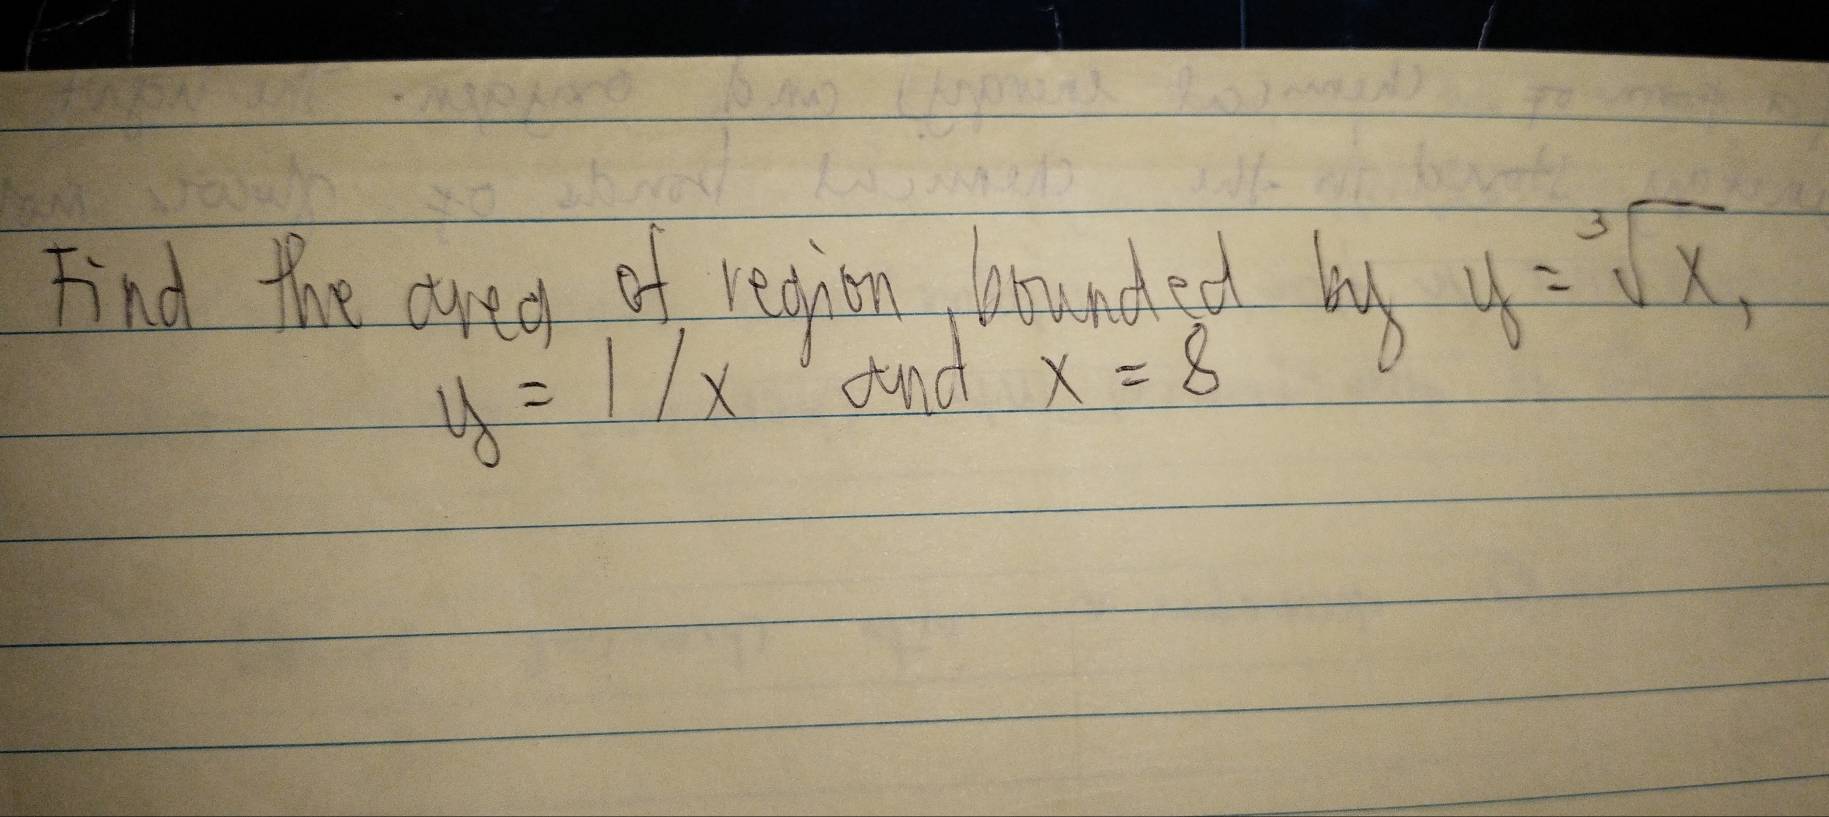 Find the area of region, bounded by y = ³√x,
y = 1/x and x = 8